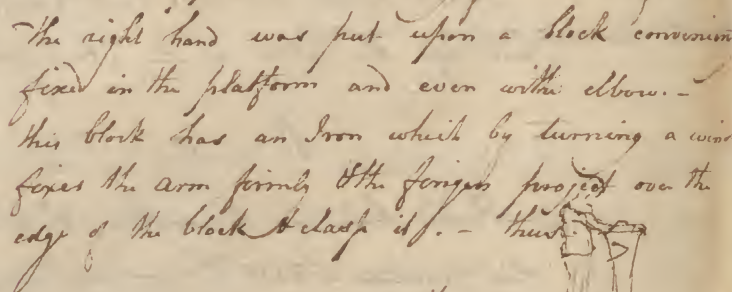 The right hand was put upon a block
fixed in the platform and even withe elbow. -
this block has an Iron which by turning a
fixes the arm firmly & the fingers project over the
edge of the block & clasp it. - thus